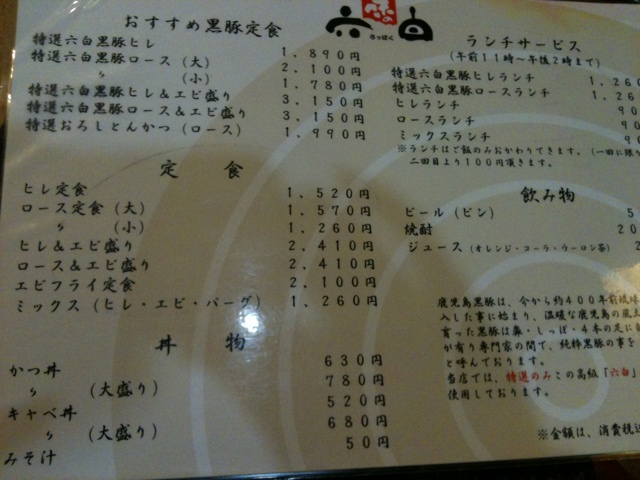 おすすめ黒豚定食
特選六白黒豚ヒレ 1,890円
特選六白黒豚ロース (大) 2,100円
〃 (小) 1,780円
特選六白黒豚ヒレ&エビ盛り 3,150円
特選六白黒豚ロース&エビ盛り 3,150円
特選おろしとんかつ (ロース) 1,990円
定食
ヒレ定食 1,520円
ロース定食 (大) 1,570円
〃 (小) 1,260円
ヒレ&エビ盛り 2,410円
ロース&エビ盛り 2,410円
エビフライ定食 2,100円
ミックス (ヒレ・エビ・バーグ) 1,260円
丼物
かつ丼 630円
〃 (大盛り) 780円
キャベ丼 520円
〃 (大盛り) 680円
みそ汁 50円
味の
六白
ろっぱく
ランチサービス
(午前11時〜午後2時まで)
特選六白黒豚ヒレランチ 1,260
特選六白黒豚ロースランチ 1,26
ヒレランチ 90
ロースランチ 90
ミックスランチ 90
※ランチはご飯のみおかわりできます。(一回に限り
二回目より100円頂きます。
飲み物
ビール (ビン) 5
焼酎 20
ジュース (オレンジ・コーラ・ウーロン茶) 2
鹿児島黒豚は、今から約400年前琉球
入した事に始まり、温暖な鹿児島の風土
育った黒豚は鼻・しっぽ・4本の足に
が有り専門家の間で、純粋黒豚の事を
と呼んでおります。
当店では、特選のみこの高級「六白」
使用しております。
※金額は、消費税込